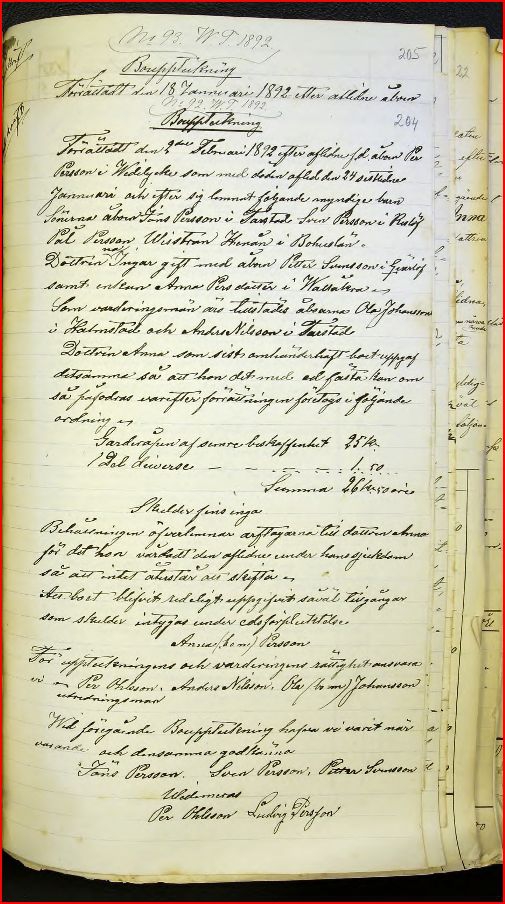 No 93. W.T. 1892.
205
Bouppteckning
Förrättadt den 18 Januari 1892 efter aflidne åbon
No 92. W.T. 1892
204
Bouppteckning
Förrättadt den 2dra Februari 1892 efter aflidne f.d. åbon Per
Persson i Widelycke som med döden afled den 24 sistlidne
Januari och efter sig lemnat följande myndige barn
Sönerna åbon Jöns Persson i Tarstad Sven Persson i
Pål Persson, Wisstran Henån i Bohuslän.
Dottren Ingar gift med åbon Petter Svensson i
samt enkan Anna Persdotter i Wallåkra
Som värderingsmän äro tillstädes åboarna Ola Johansson
i Halmstad och Anders Nilsson i Tarstad
Dottren Anna som sist omhänderhaft boet uppgaf
detsamma så att hon det med ed fästa kan om
så påfodras varefter förrättningen företogs i följande
ordning
Garderåpen af sämre beskaffenhet 25 kr.
1 Del diverse 1.50
Summa 26 kr 50 öre
Skulder fins inga
Behållningen öfverlemnar arftagarna till dottren Anna
för det hon vårdadt den aflidne under hans sjukdom
så att intet återstår att skifta
Att boet blifvit redeligt uppgifvet såväl tillgångar
som skulder intygas under edsförpliktelse
Anna (h o m) Persson
För uppteckningens och värderingens riktighet ansvara
vi Per Ohlsson. Anders Nilsson. Ola (h o m) Johansson
utredningsman
Wid föregående Bouppteckning hafva vi varit när
varande och densamma godkänna
Jöns Persson. Sven Persson. Petter Svensson
Widimeras
Per Ohlsson Ludvig Persson